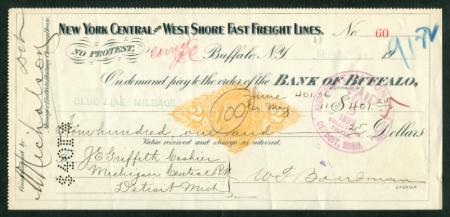 NEW YORK CENTRAL AND WEST SHORE FAST FREIGHT LINES. No. 60
NO PROTEST.
Buffalo, N.Y. 19
On demand pay to the order of the BANK OF BUFFALO,
BLUE LINE, MILEAGE
June
for May
$401.20
100
Four hundred one and 20 Dollars
Value received and charge as advised.
J E Griffith Cashier
Michigan Central R.R.
Detroit Mich
W F Boardman
CASHIER
DETROIT, MICH.
Nicholson